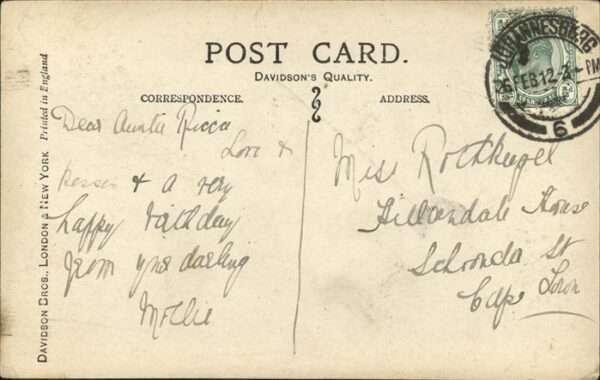 POST CARD.
DAVIDSON'S QUALITY.
CORRESPONDENCE.
ADDRESS.
DAVIDSON BROS., LONDON & NEW YORK Printed in England
JOHANNESBURG
FEB 12
PM
6
Dear Auntie Ricca
Love &
kisses & a very
happy birthday
from your darling
Mollie
Miss Rothkugel
House
St
Cape Town